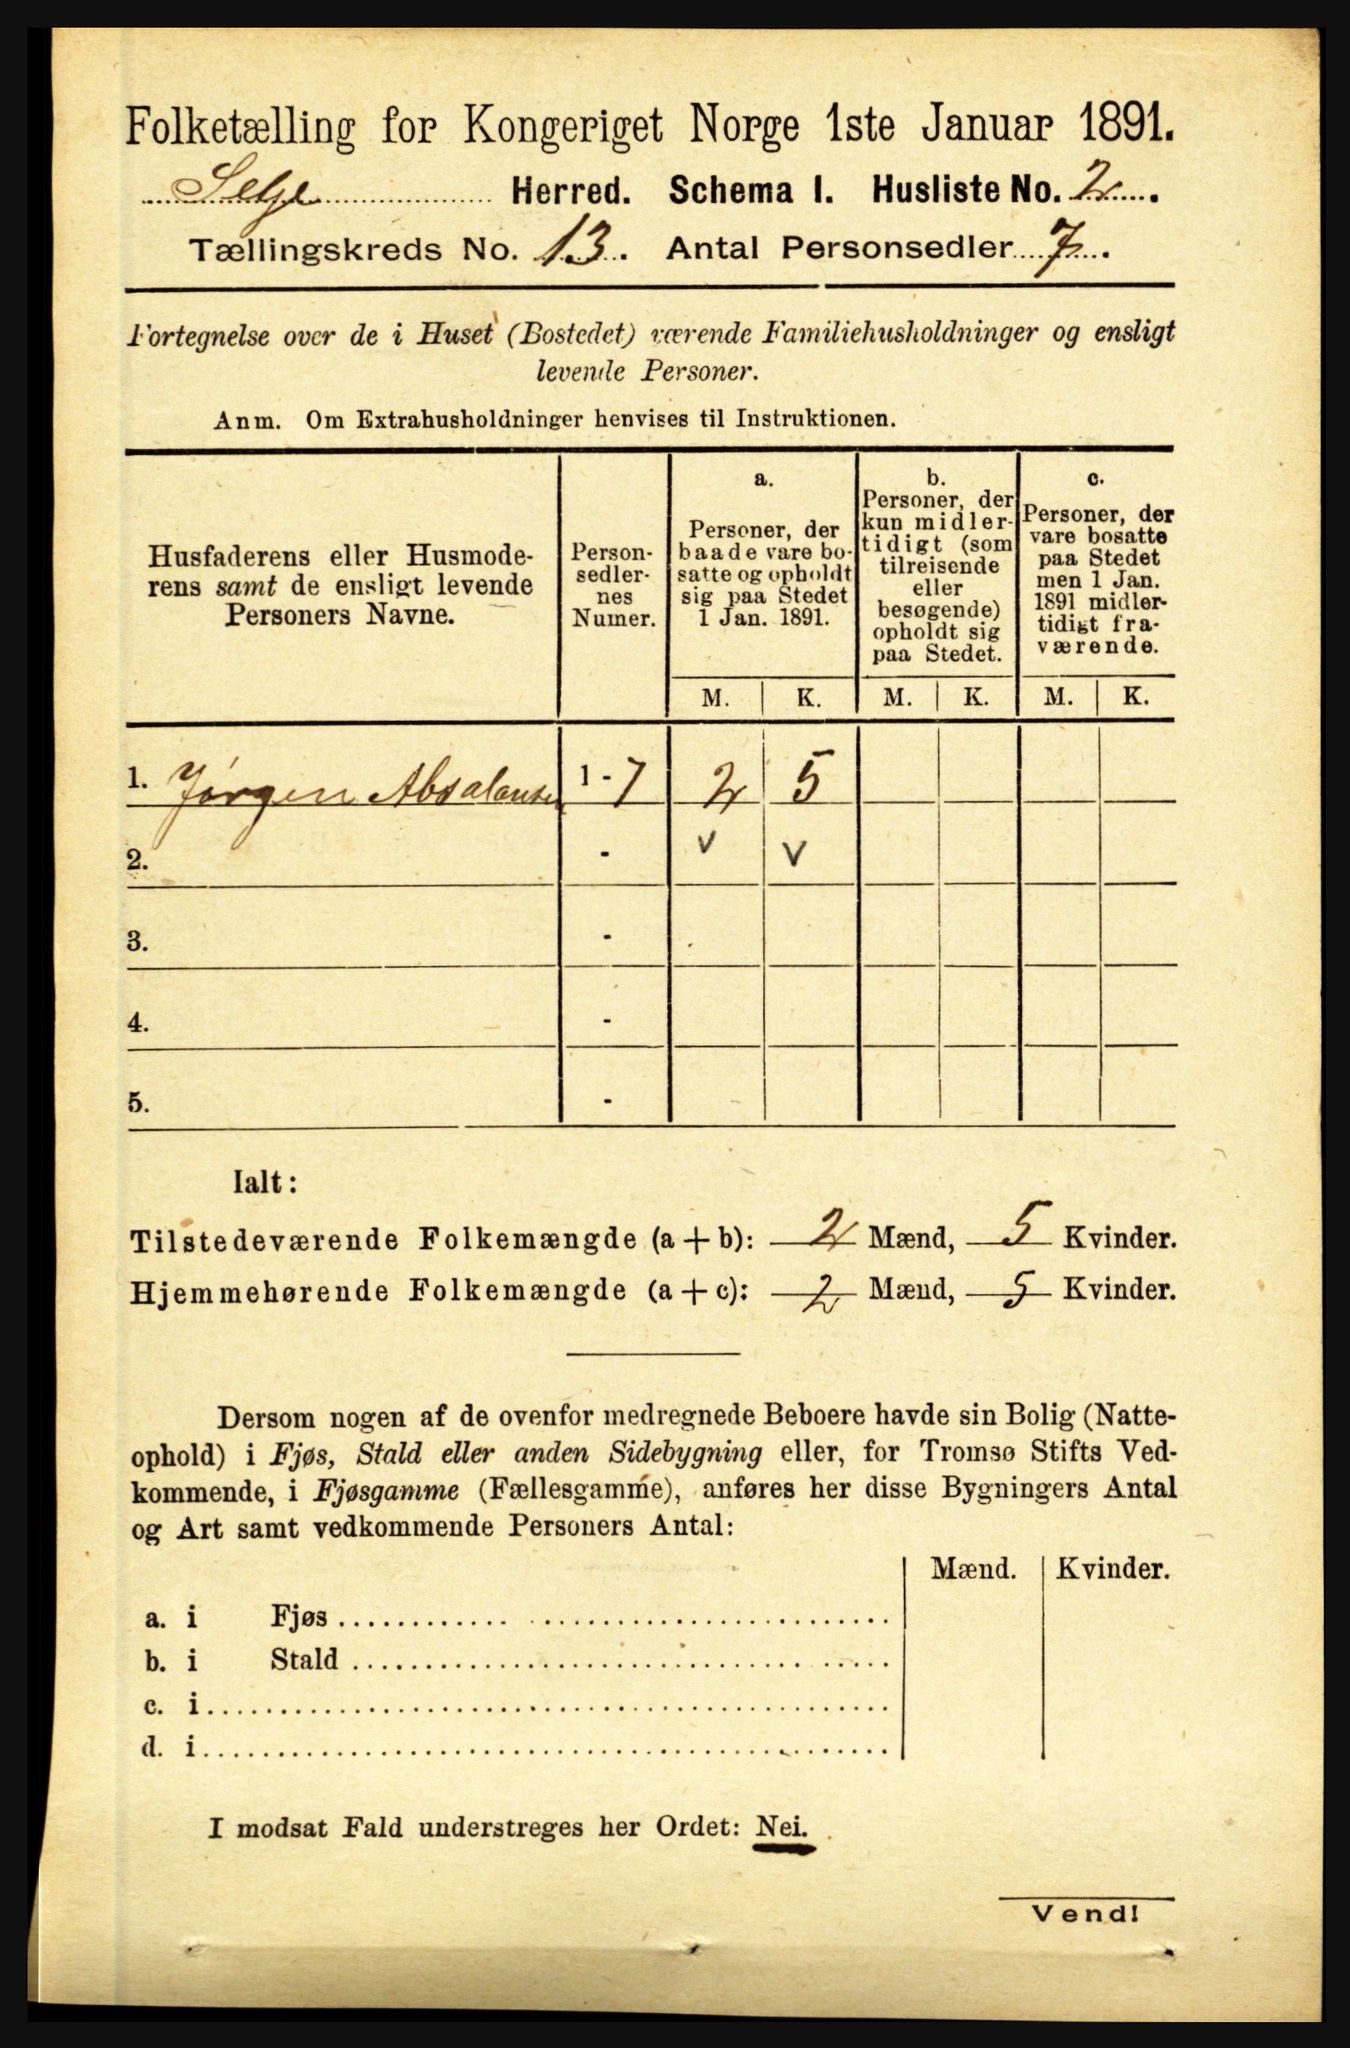 Folketælling for Kongeriget Norge 1ste Januar 1891.
Selje Herred. Schema I. Husliste No. 2.
Tællingskreds No. 13. Antal Personsedler 7.
Fortegnelse over de i Huset (Bostedet) værende Familiehusholdninger og ensligt
levende Personer.
Anm. Om Extrahusholdninger henvises til Instruktionen.
Husfaderens eller Husmode-
rens samt de ensligt levende
Personers Navne.
Person-
sedler-
nes
Numer.
a.
Personer, der
baade vare bo-
satte og opholdt
sig paa Stedet
1 Jan. 1891.
b.
Personer, der
kun midler-
tidigt (som
tilreisende
eller
besøgende)
opholdt sig
paa Stedet.
c.
Personer, der
vare bosatte
paa Stedet
men 1 Jan.
1891 midler-
tidigt fra-
værende.
M. K. M. K. M. K.
1. Jørgen Absalonsen 1-7 2 5
2. - v v
3. -
4. -
5. -
Ialt:
Tilstedeværende Folkemængde (a + b): 2 Mænd, 5 Kvinder.
Hjemmehørende Folkemængde (a + c): 2 Mænd, 5 Kvinder.
Dersom nogen af de ovenfor medregnede Beboere havde sin Bolig (Natte-
ophold) i Fjøs, Stald eller anden Sidebygning eller, for Tromsø Stifts Ved-
kommende, i Fjøsgamme (Fællesgamme), anføres her disse Bygningers Antal
og Art samt vedkommende Personers Antal:
Mænd. Kvinder.
a. i Fjøs
b. i Stald
c. i
d. i
I modsat Fald understreges her Ordet: Nei.
Vend!